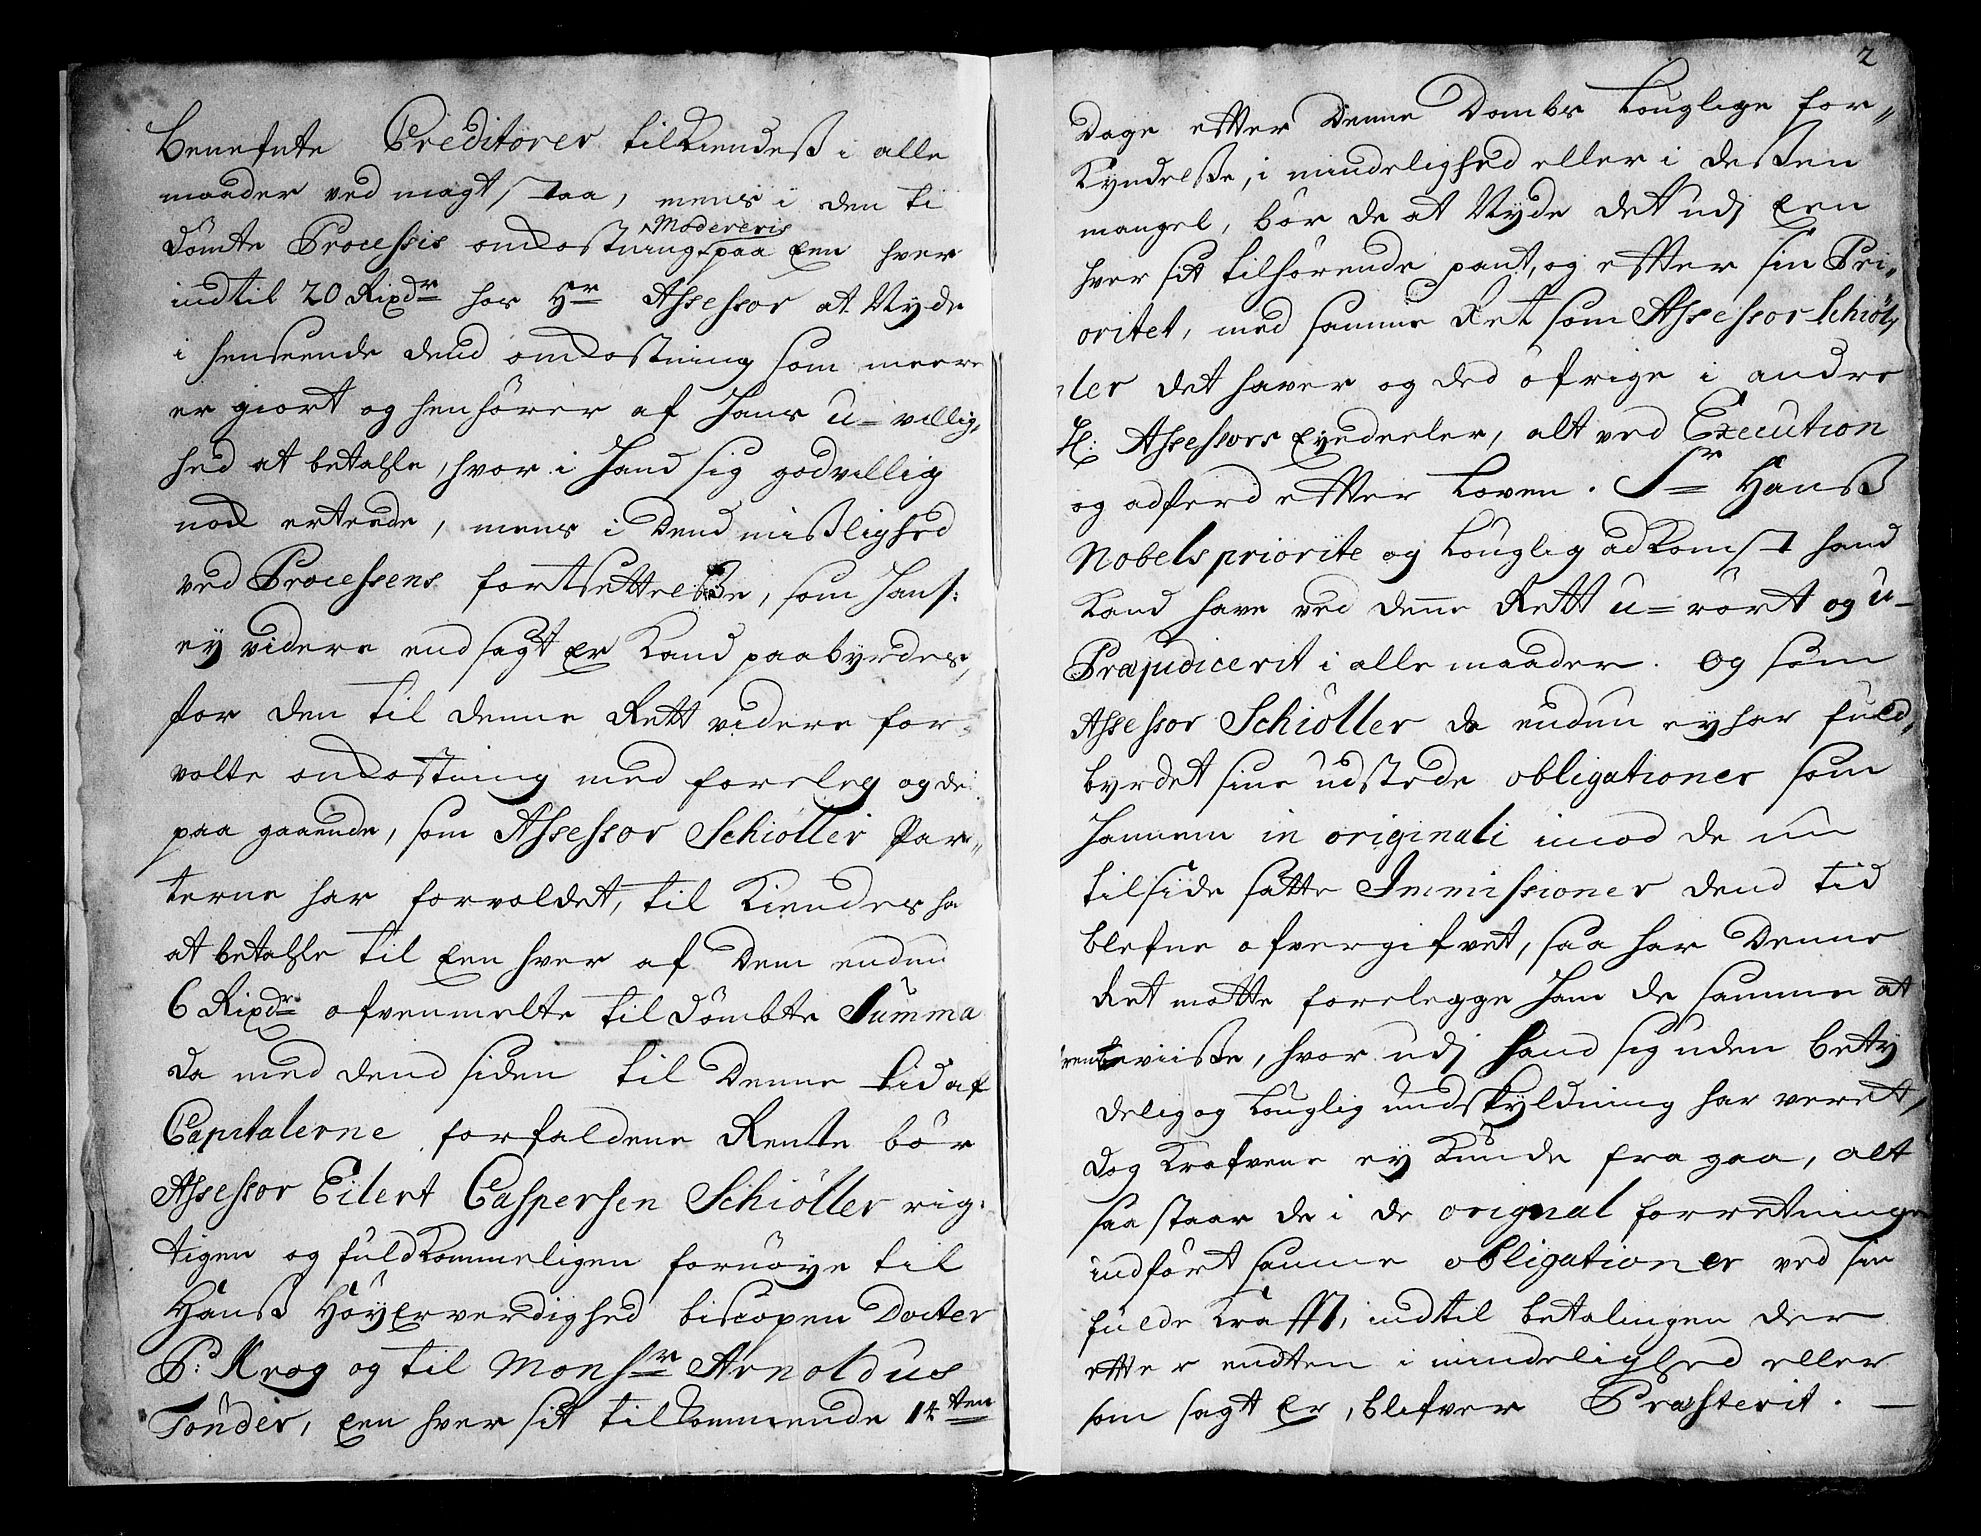 benefnte Creditorer tilkiendeß i alle
maader ved magt staa, mens i den til
dömte Processis omkostning Modereris
paa Een hver
indtil 20 Rixdr hos Hr Assessor at Nyde
i henseende dend omkostning som meere
er giort og henhörer af Hans u-villig,
hed at betahle, hvor i Hand sig godvillig
nok erteede, mens i Dend mißlighed
ved Processens fortsettelße, som Hans:
ey videre end sagt Er Kand paabyrdes,
for den til denne Rett videre for-
volte omkostning med foreleg og de:
paa gaaende, som Assessor Schiöller Par,,
terne har forvoldet, til Kiendes ha
at betahle til Een hver af Dem endnu
6 Rixdr ofvenmelte til Dömbte Summa
da med dend siden til Denne tid af
Capitalerne forfaldene Rente bör
Assessor Eilert Caspersen Schiöller rig:
tigen og fuldkommeligen fornöye til
Hanß HöyErverdighed biscopen Docter
P: Krog og til Monsr Arnoldus
Tönder, Een hver sit tilkommende 14ten
2
Dage efter Denne Dombs Louglige for,,
Kyndelße, i mindelighed eller i deßen
mangel, bör de at Nyde det udj Een
hver sit tilhörende pant, og efter sin Pri,,
oritet, med samme Ret som Assessor Schiöl,
ler det haver og ded öfrige i andre
H: Assessors Eyendeeler, alt ved Execution
og adferd efter Loven. Sr Hanß
Nobels priorite og Louglig adkomst hand
Kand have ved denne Rett u-rört og u-
Præjudicerit i alle maader. Og som
Assessor Schiöller da endnu ey har fuld,
byrdet sine udstede obligationer som
Hannem in originali imod de nu
tilside satte Immissioner dend tid
blefne ofvergifvet, saa har Denne
Ret motte forelegge Ham de samme at
fremteviiße, hvor udj Hand sig uden bety
delig og Louglig undskyldning har veret,
dog Krafvene ey Kunde fra gaa, alt
saa staar de i de orignal forretninger
indfört samme obligationer ved sin
fulde Krafft, indtil betalingen der
etter endten i mindelighed eller
som sagt Er, blifver Præsterit. —